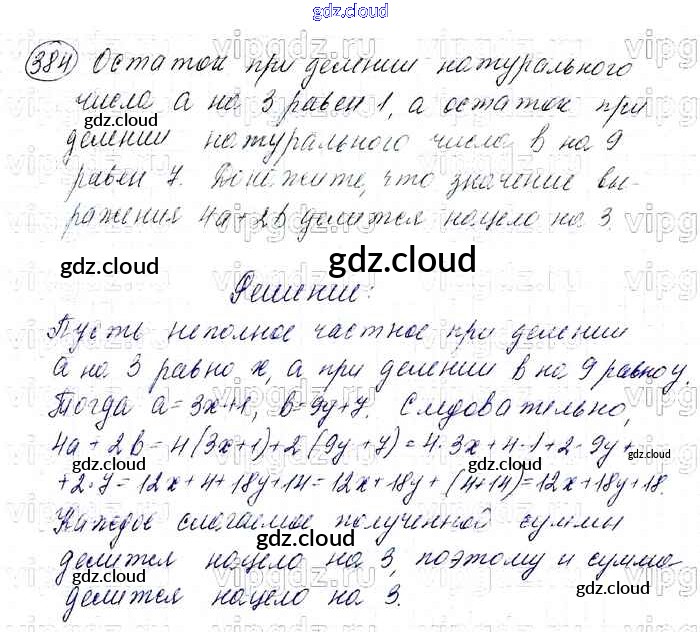 gdz.cloud
384 Остаток при делении натурального
числа a на 3 равен 1, а остаток при
делении натурального числа b на 9
равен 7. Докажите, что значение вы-
ражения 4a+2b делится нацело на 3.
gdz.cloud gdz.cloud gdz.cloud
Решение:
Пусть неполное частное при делении
a на 3 равно x, а при делении b на 9 равно y.
Тогда a=3x+1, b=9y+7. Следовательно,
4a+2b=4(3x+1)+2(9y+7)=4·3x+4·1+2·9y+
+2·7=12x+4+18y+14=12x+18y+(4+14)=12x+18y+18.
Каждое слагаемое полученной суммы
делится нацело на 3, поэтому и сумма
делится нацело на 3.